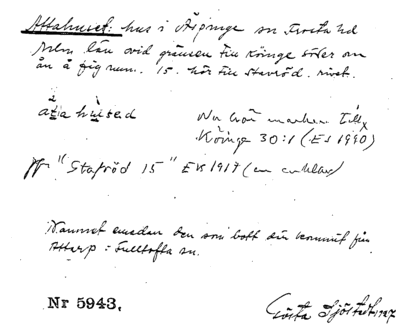 Attahuset: hus i Äspinge sn Frosta hd
Malm. län vid gränsen till Köinge söder om
ån å fig num. 15. hör till Stavröd. rivet.
Nu hör marken till
Köinge 30:1 (EJ 1990)
"Stafröd 15" EK 1917 (en enklav)
Namnet emedan den som bott där kommit från
Attarp i Fulltofta sn.
Nr 5943.
Gösta Sjöstedt 1927